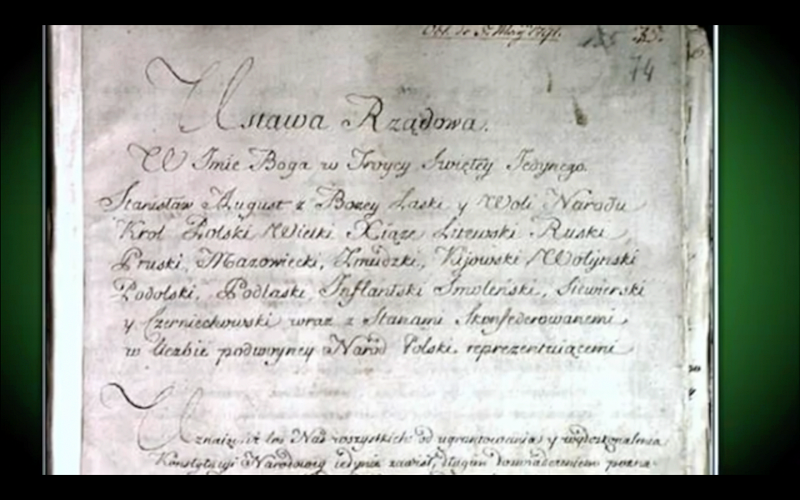 Obl. de 5. May 1791.
74
Ustawa Rządowa.
W Imie Boga w Troycy Swiętey Jedynego.
Stanisław August z Bożey Łaski y Woli Narodu
Krol Polski, Wielki Xiąże Litewski Ruski,
Pruski, Mazowiecki, Żmudzki, Kijowski Wołyński
Podolski, Podlaski Inflantski Smoleński, Siewierski
y Czerniechowski wraz z Stanami Skonfederowanemi,
w liczbie podwoyney Narod Polski reprezentuiącemi
Uznaiąc, iż los Nas wszystkich od ugruntowania y wydoskonalenia
Konstytucyi Narodowey iedynie zawisł, długim doswiadczeniem pozna-